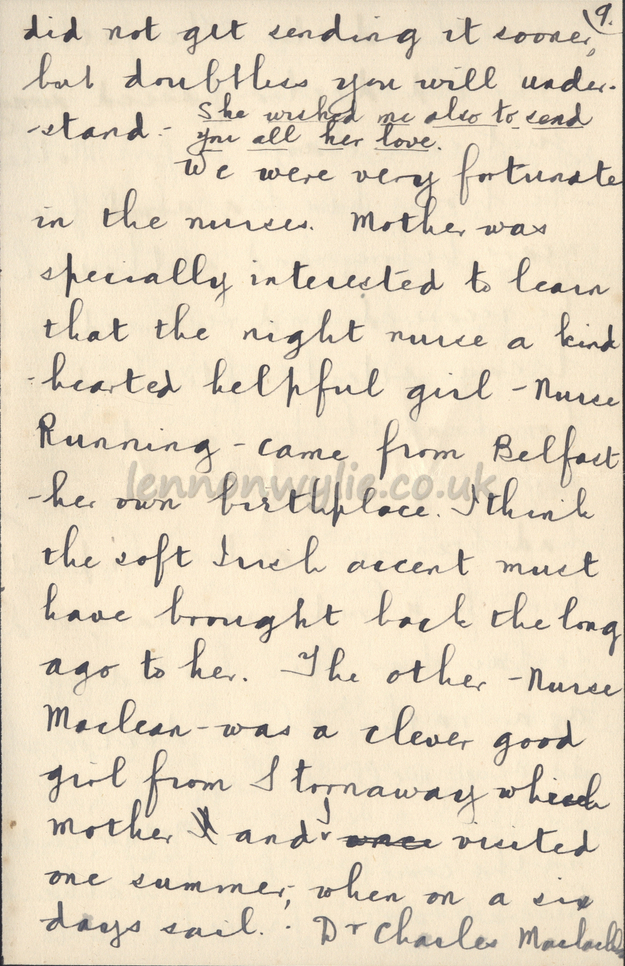 9.
did not get sending it sooner,
but doubtless you will under-
-stand - She wished me also to send
you all her love.
We were very fortunate
in the nurses. Mother was
specially interested to learn
that the night nurse a kind
-hearted helpful girl - Nurse
Running - came from Belfast
lennonwylie.co.uk
-her own birthplace. I think
the soft Irish accent must
have brought back the long
ago to her. The other - Nurse
Maclean - was a clever good
girl from Stornaway which
Mother and I visited
one summer, when on a six
days sail. Dr Charles